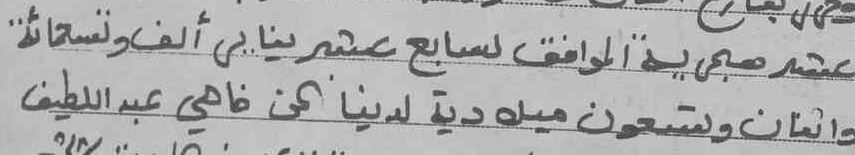 عشر هجرية الموافق لسابع عشر يناير ألف وتسعمائة
واثنان وتسعون ميلادية لدينا نحن فاهي عبد اللطيف